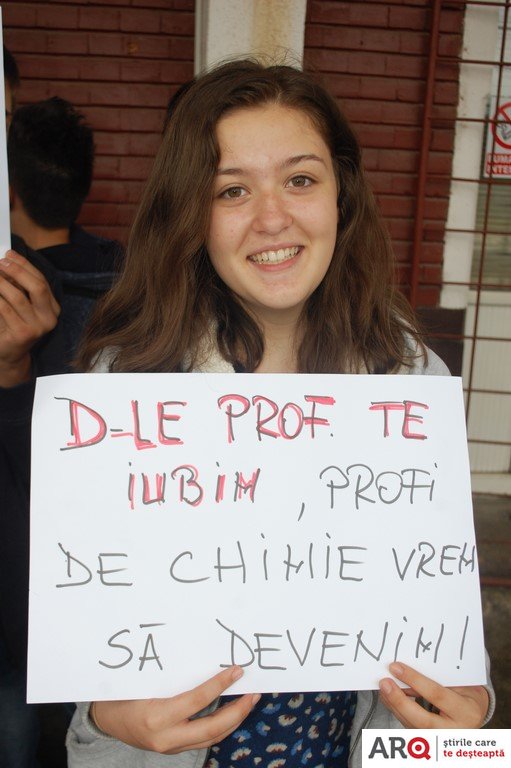 D-LE PROF. TE
IUBIM, PROFI
DE CHIMIE VREM
SĂ DEVENIM!
ARQ știrile care
te deșteaptă